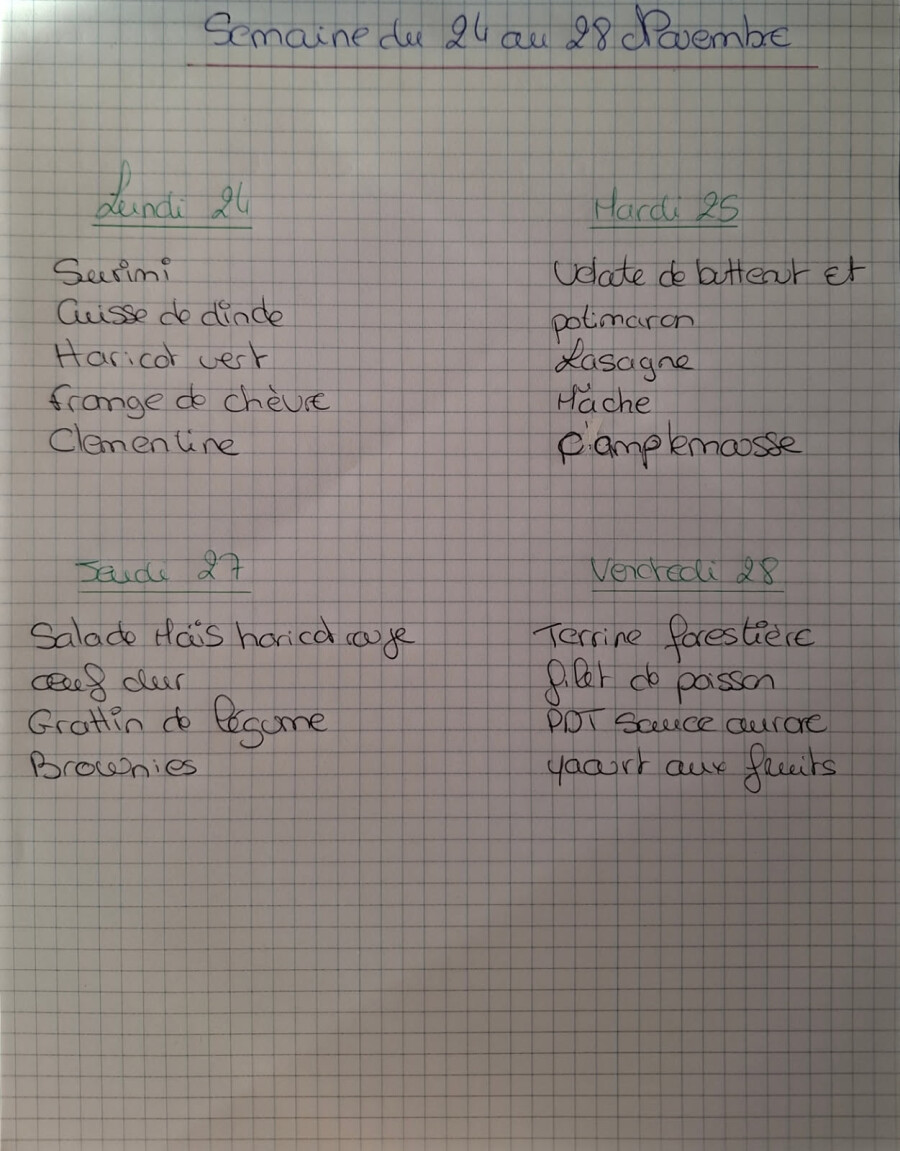 Semaine du 24 au 28 Novembre
Lundi 24
Surimi
Cuisse de dinde
Haricot vert
frange de chèvre
Clementine
Mardi 25
Velate de butternut et
potimaron
Lasagne
Mâche
Pamplemousse
Jeudi 27
Salade Maïs haricot rouge
œuf dur
Grattin de légume
Brownies
Vendredi 28
Terrine forestière
filet de poisson
PDT Sauce aurore
yaourt aux fruits